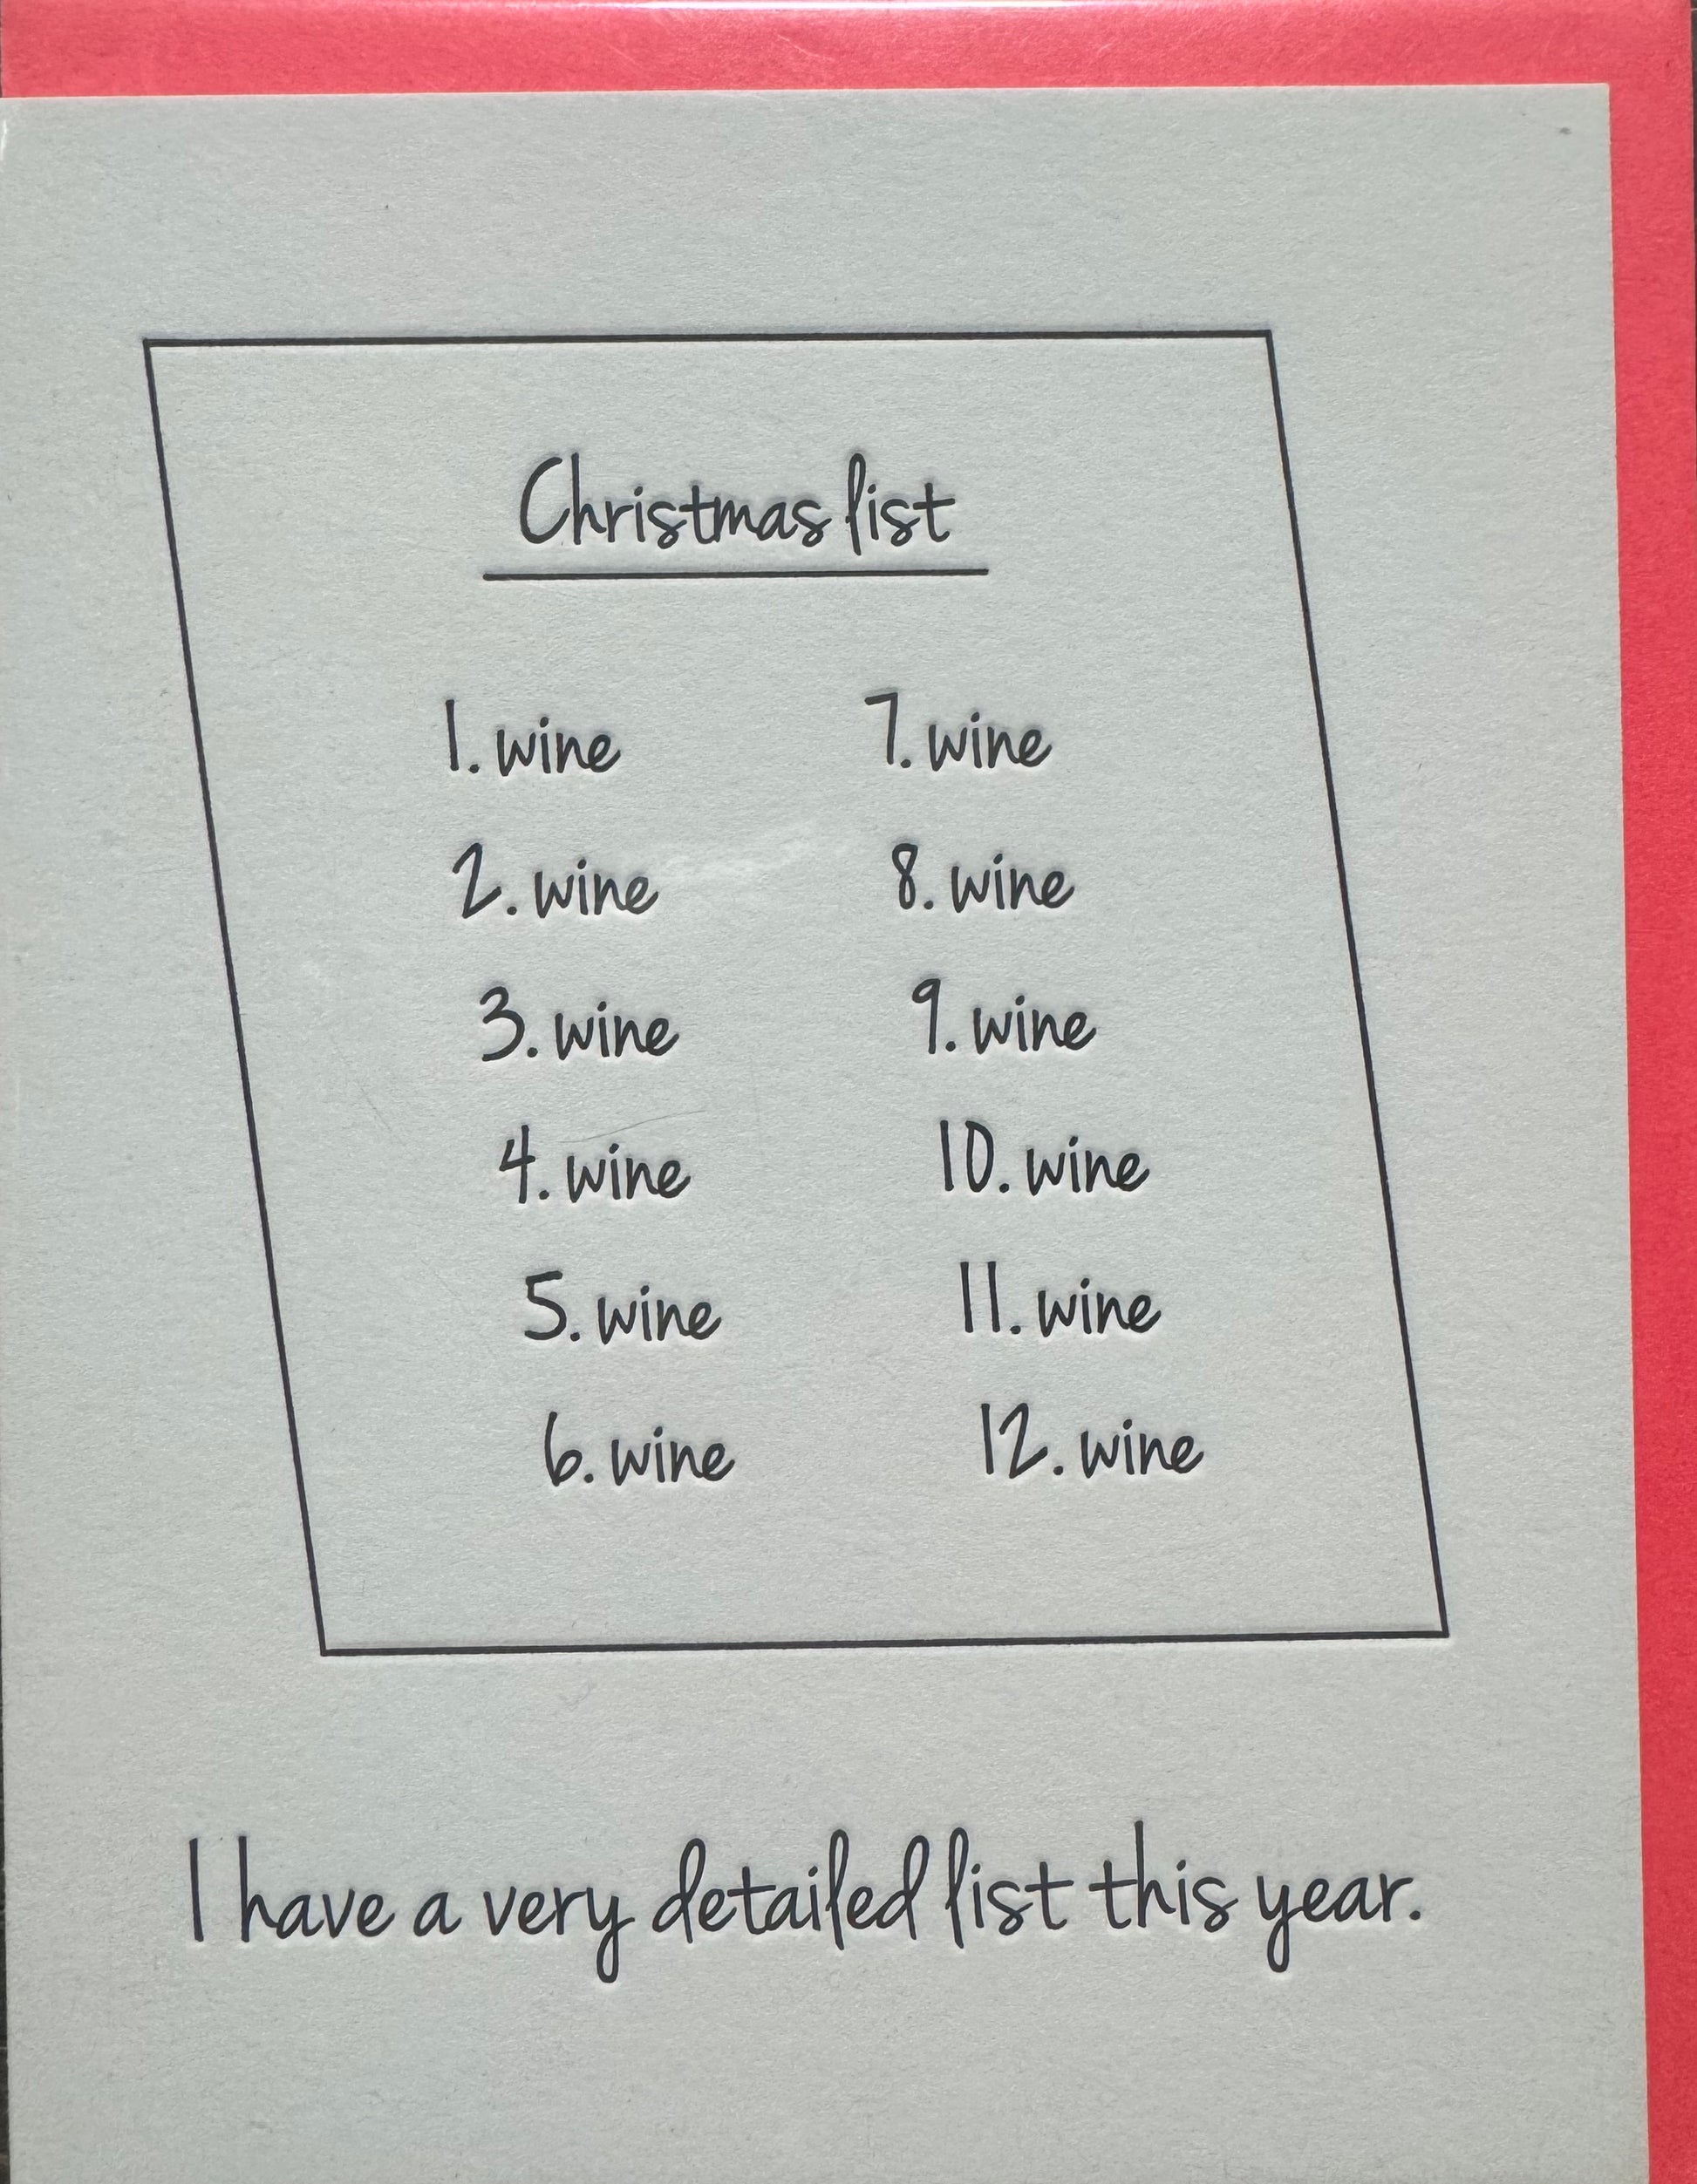 Christmas list
1. wine
2. wine
3. wine
4. wine
5. wine
6. wine
7. wine
8. wine
9. wine
10. wine
11. wine
12. wine
I have a very detailed list this year.